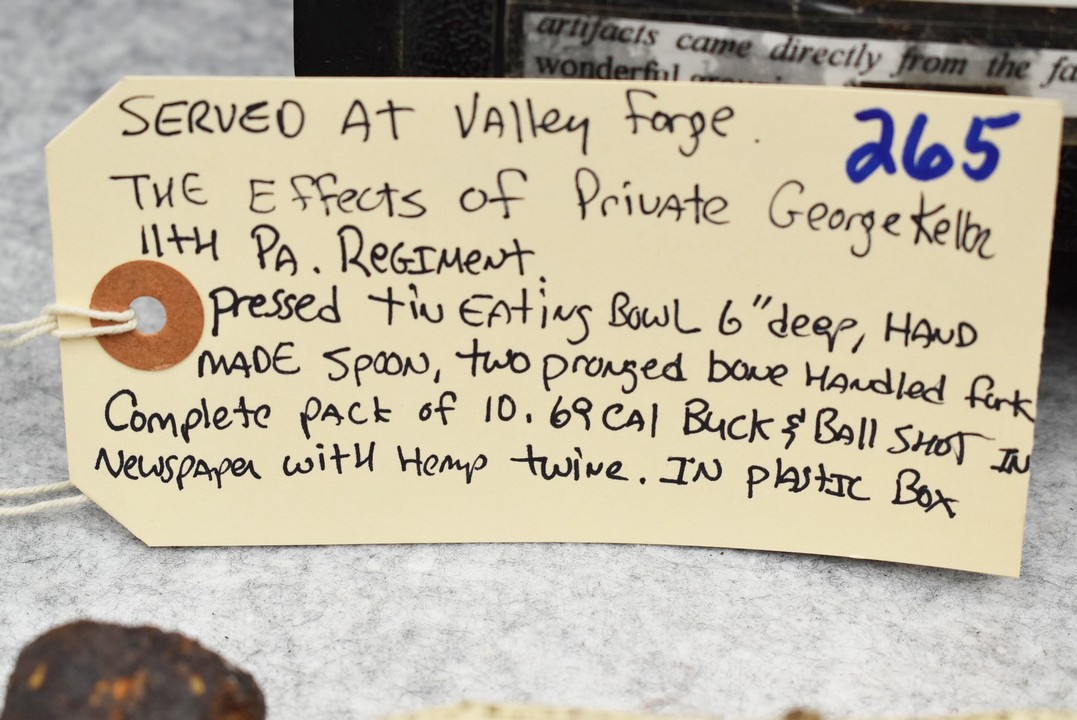 artifacts came directly from the fa
wonderful
SERVED AT Valley Forge.
265
THE Effects of Private George Keller
11TH PA. REGIMENT.
pressed tin EAting BOWL 6" deep, HAND
MADE SPOON, two pronged bone HANdled fork
Complete PACK of 10 .69 CAl BUCK & BAll SHOT IN
Newspaper witH Hemp twine. IN plASTIC BOX